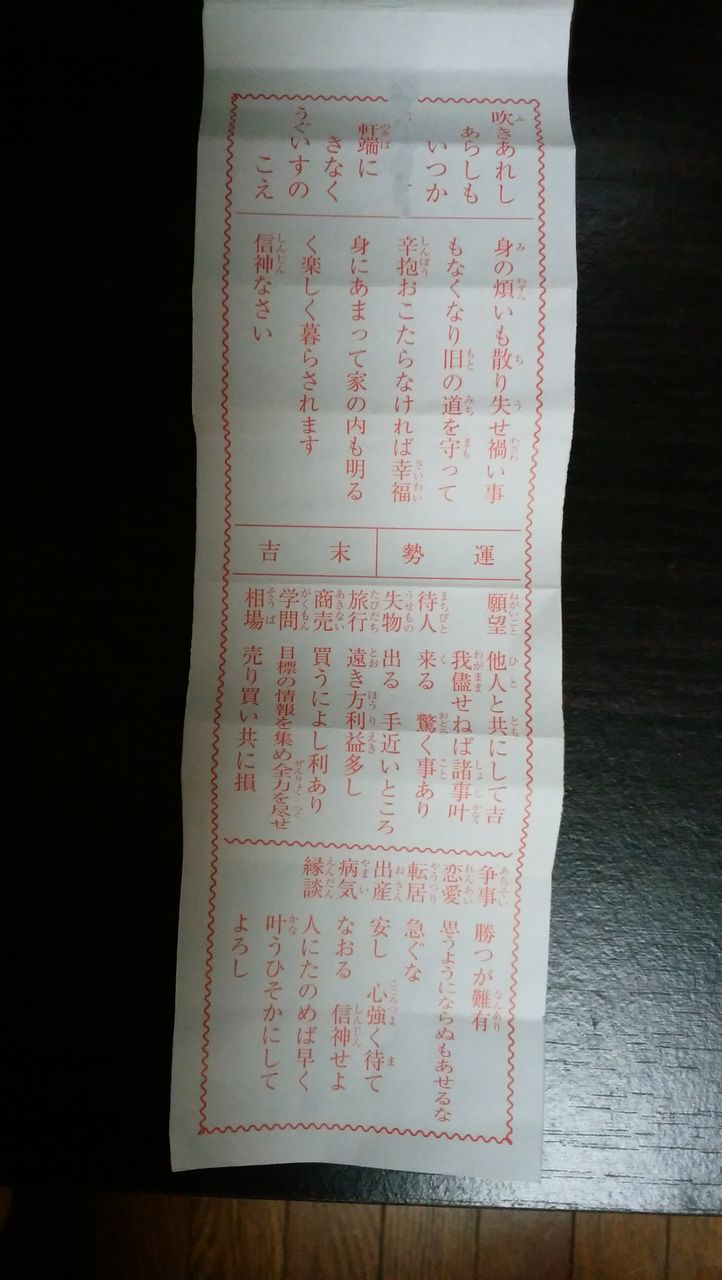 吹きあれし
あらしも
いつか
軒端に
きなく
うぐいすの
こえ
身の煩いも散り失せ禍い事
もなくなり旧の道を守って
辛抱おこたらなければ幸福
身にあまって家の内も明る
く楽しく暮らされます
信神なさい
運勢
末吉
願望 他人と共にして吉
我儘せねば諸事叶
待人 来る 驚く事あり
失物 出る 手近いところ
旅行 遠き方利益多し
商売 買うによし利あり
学問 目標の情報を集め全力を尽せ
相場 売り買い共に損
争事 勝つが難有
恋愛 思うようにならぬもあせるな
転居 急ぐな
出産 安し 心強く待て
病気 なおる 信神せよ
縁談 人にたのめば早く
叶うひそかにして
よろし